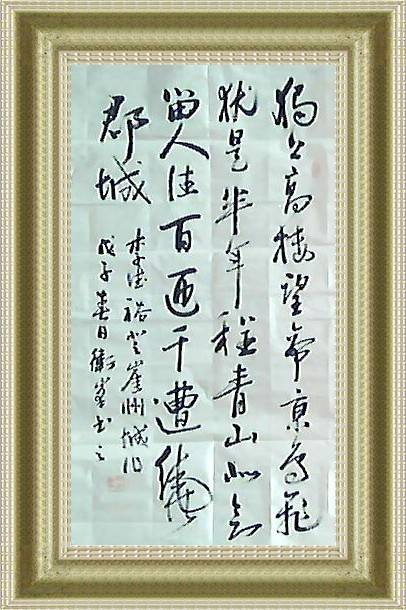 独上高楼望帝京鸟飛
犹是半年程青山似欲
留人住百匝千遭繞
郡城
李德裕登崖州城作
戊子春日衛峯书之